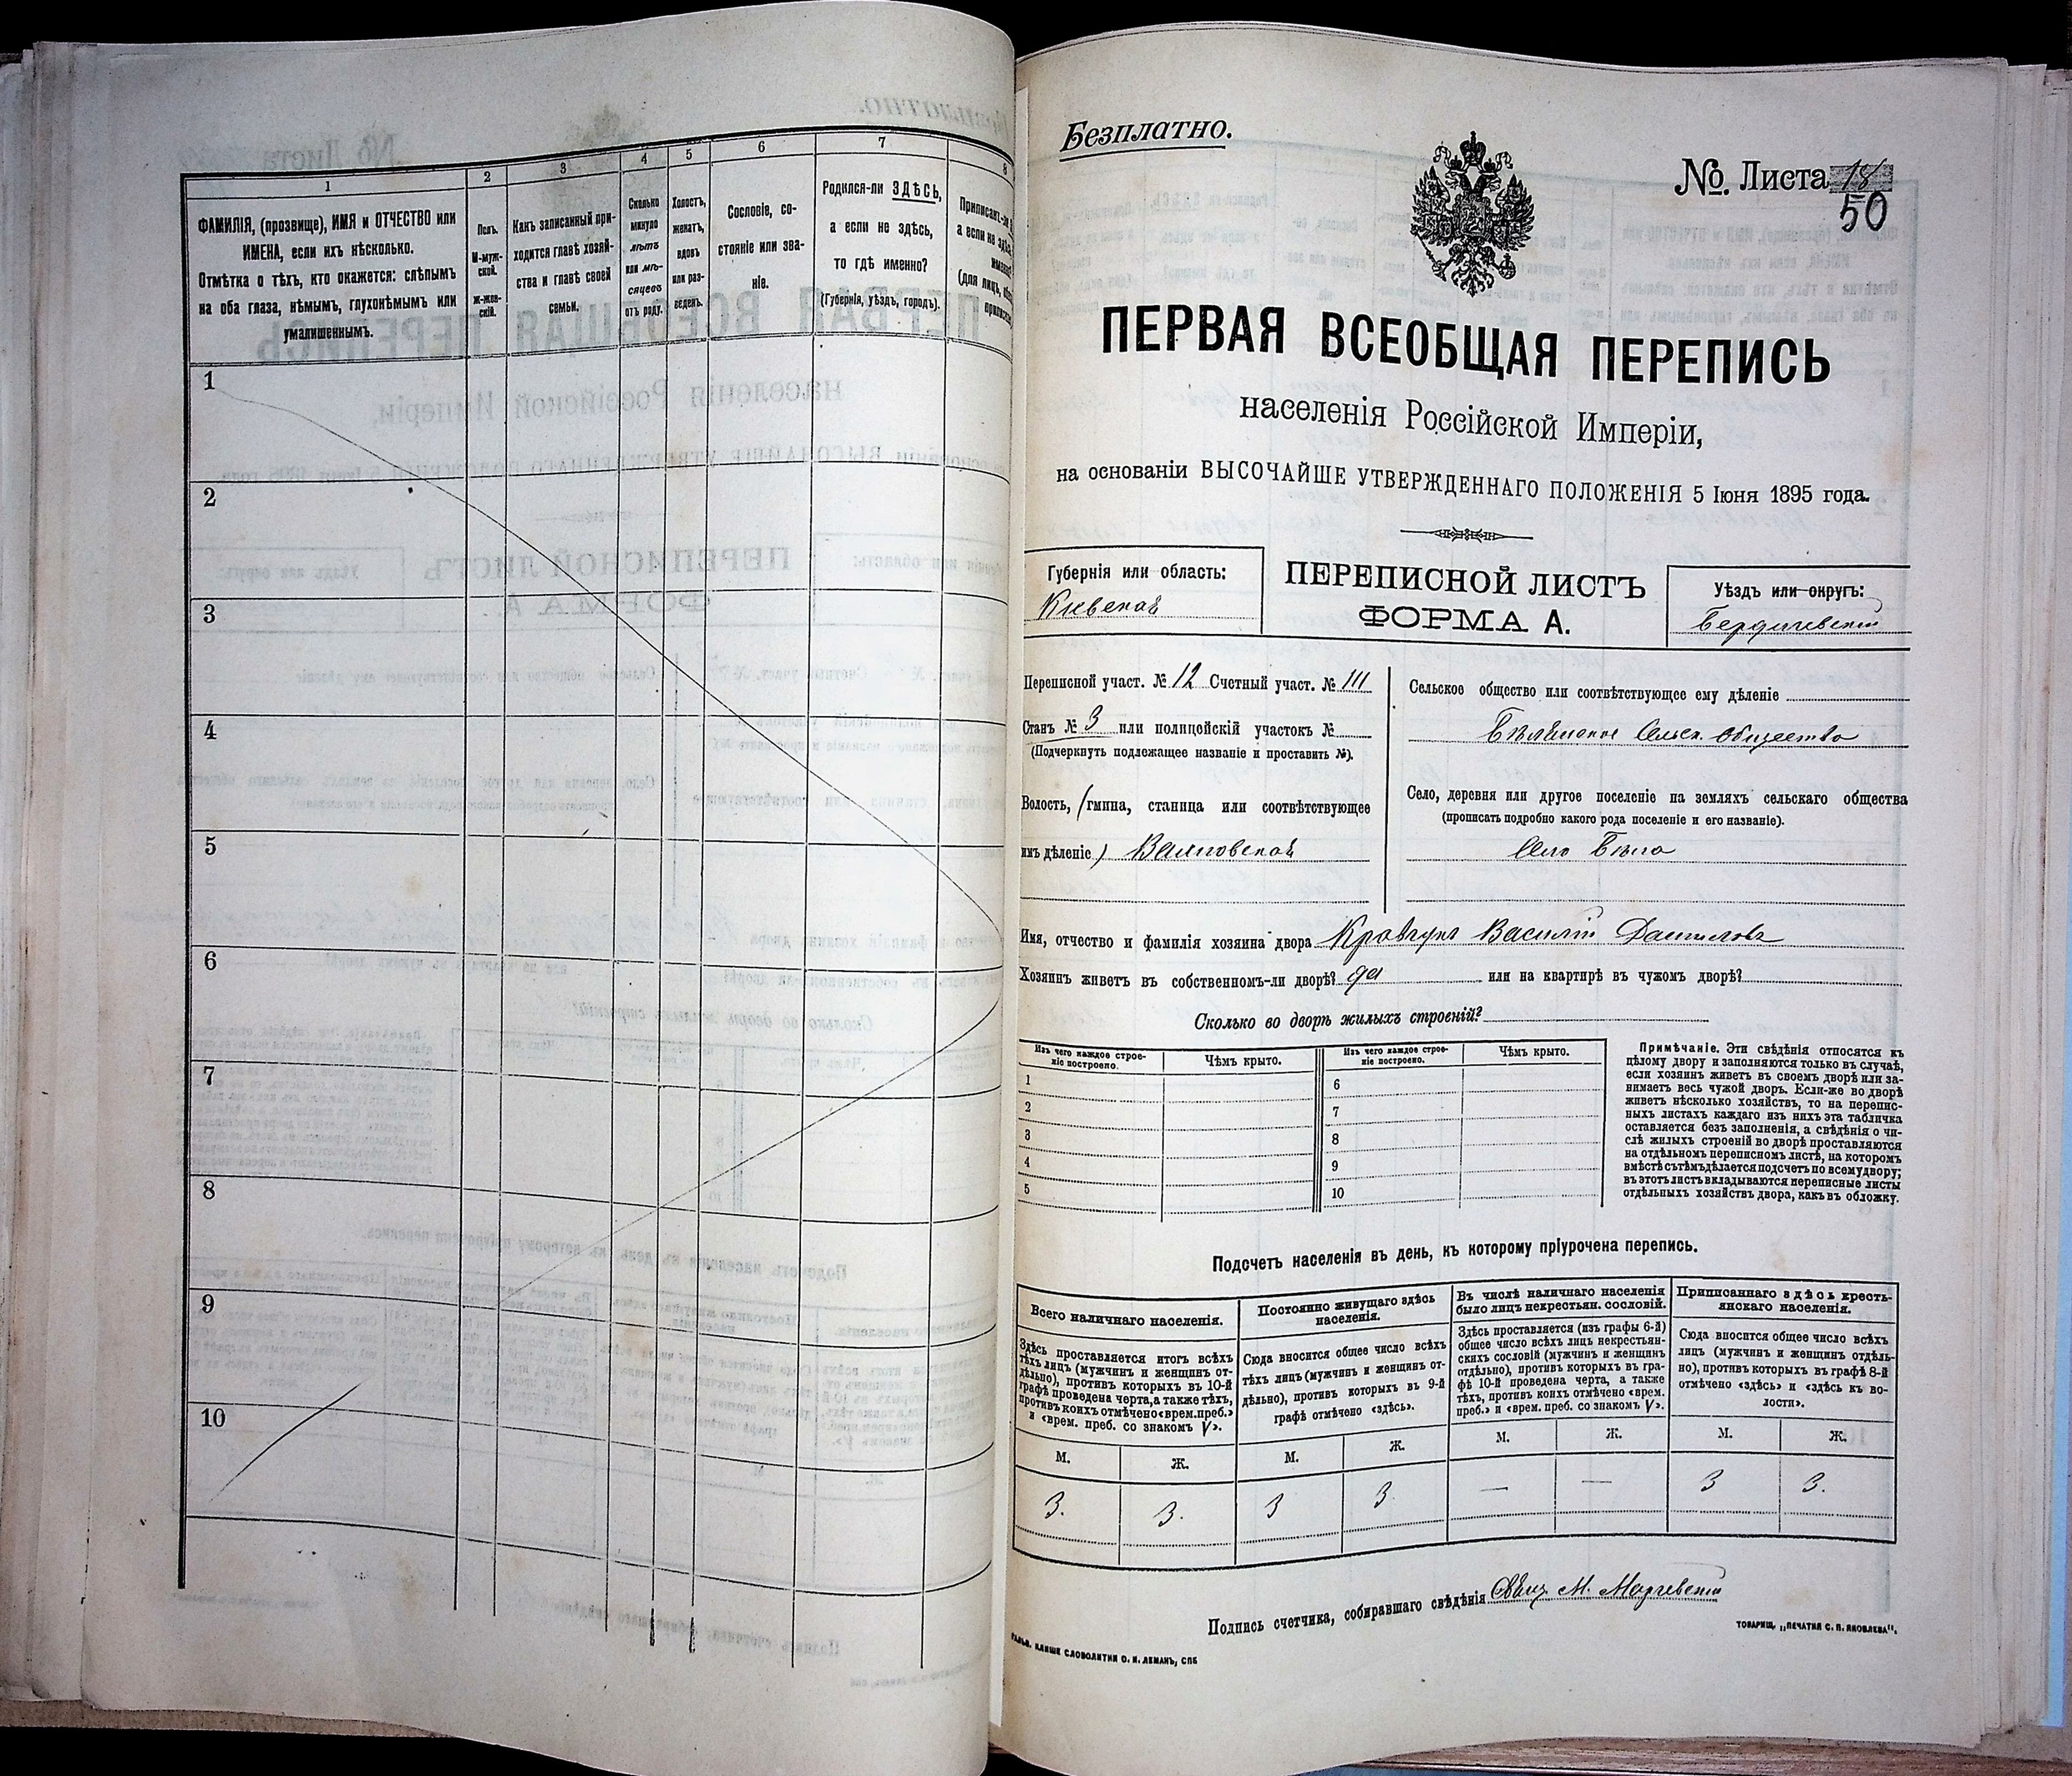 1
2
3
4
5
6
7
8
ФАМИЛІЯ, (прозвище), ИМЯ и ОТЧЕСТВО или
ИМЕНА, если ихъ нѣсколько.
Отмѣтка о тѣхъ, кто окажется: слѣпымъ
на оба глаза, нѣмымъ, глухонѣмымъ или
умалишеннымъ.
Полъ.
М-муж-
ской.
Ж-жен-
скій.
Какъ записанный при-
ходится главѣ хозяй-
ства и главѣ своей
семьи.
Сколько
минуло
лѣтъ
или мѣ-
сяцевъ
отъ роду.
Холостъ,
женатъ,
вдовъ
или раз-
веденъ.
Сословіе, со-
стояніе или зва-
ніе.
Родился-ли ЗДѢСЬ,
а если не здѣсь,
то гдѣ именно?
(Губернія, уѣздъ, городъ).
1
2
3
4
5
6
7
8
9
10
Безплатно.
№ Листа 18
50
ПЕРВАЯ ВСЕОБЩАЯ ПЕРЕПИСЬ
населенія Россійской Имперіи,
на основаніи ВЫСОЧАЙШЕ УТВЕРЖДЕННАГО ПОЛОЖЕНІЯ 5 Іюня 1895 года.
Губернія или область:
Кіевской
ПЕРЕПИСНОЙ ЛИСТЪ
ФОРМА А.
Уѣздъ или округъ:
Бердичевскій
Переписной участ. № 12 Счетный участ. № III
Станъ № 3 или полицейскій участокъ №
(Подчеркнуть подлежащее названіе и проставить №).
Волость, (гмина, станица или соотвѣтствующее
имъ дѣленіе)
Сельское общество или соотвѣтствующее ему дѣленіе
Сельск. Общество
Село, деревня или другое поселеніе на земляхъ сельскаго общества
(прописать подробно какого рода поселеніе и его названіе).
Село
Имя, отчество и фамилія хозяина двора Кравчукъ Василій Даниловъ
Хозяинъ живетъ въ собственномъ-ли дворѣ? да или на квартирѣ въ чужомъ дворѣ?
Сколько во дворѣ жилыхъ строеній?
Изъ чего каждое строе-
ніе построено.
Чѣмъ крыто.
Изъ чего каждое строе-
ніе построено.
Чѣмъ крыто.
1
2
3
4
5
6
7
8
9
10
Примѣчаніе. Эти свѣдѣнія относятся къ
цѣлому двору и заполняются только въ случаѣ,
если хозяинъ живетъ въ своемъ дворѣ или за-
нимаетъ весь чужой дворъ. Если-же во дворѣ
живетъ нѣсколько хозяйствъ, то на перепис-
ныхъ листахъ каждаго изъ нихъ эта табличка
оставляется безъ заполненія, а свѣдѣнія о чи-
слѣ жилыхъ строеній во дворѣ проставляются
на отдѣльномъ переписномъ листѣ, на которомъ
вмѣстѣ съ тѣмъ дѣлается подсчетъ по всему двору;
въ этотъ листъ вкладываются переписные листы
отдѣльныхъ хозяйствъ двора, какъ въ обложку.
Подсчетъ населенія въ день, къ которому пріурочена перепись.
Всего наличнаго населенія.
Здѣсь проставляется итогъ всѣхъ
тѣхъ лицъ (мужчинъ и женщинъ от-
дѣльно), противъ которыхъ въ 10-й
графѣ проведена черта, а также тѣхъ,
противъ коихъ отмѣчено «врем. преб.»
и «врем. преб. со знакомъ V».
Постоянно живущаго здѣсь
населенія.
Сюда вносится общее число всѣхъ
тѣхъ лицъ (мужчинъ и женщинъ от-
дѣльно), противъ которыхъ въ 9-й
графѣ отмѣчено «здѣсь».
Въ числѣ наличнаго населенія
было лицъ некрестьян. сословій.
Здѣсь проставляется (изъ графы 6-й)
общее число всѣхъ лицъ некрестьян-
скихъ сословій (мужчинъ и женщинъ
отдѣльно), противъ которыхъ въ гра-
фѣ 10-й проведена черта, а также
тѣхъ, противъ коихъ отмѣчено «врем.
преб.» и «врем. преб. со знакомъ V».
Приписаннаго здѣсь кресть-
янскаго населенія.
Сюда вносится общее число всѣхъ
лицъ (мужчинъ и женщинъ отдѣль-
но), противъ которыхъ въ графѣ 8-й
отмѣчено «здѣсь» и «здѣсь къ во-
лости».
М. Ж. М. Ж. М. Ж. М. Ж.
3. 3. 3 3 — — 3 3.
Подпись счетчика, собиравшаго свѣдѣнія
ТОВАРИЩ. „ПЕЧАТНЯ С. П. ЯКОВЛЕВА".
КЛИШЕ СЛОВОЛИТНИ О. И. ЛЕМАНЪ, СПБ